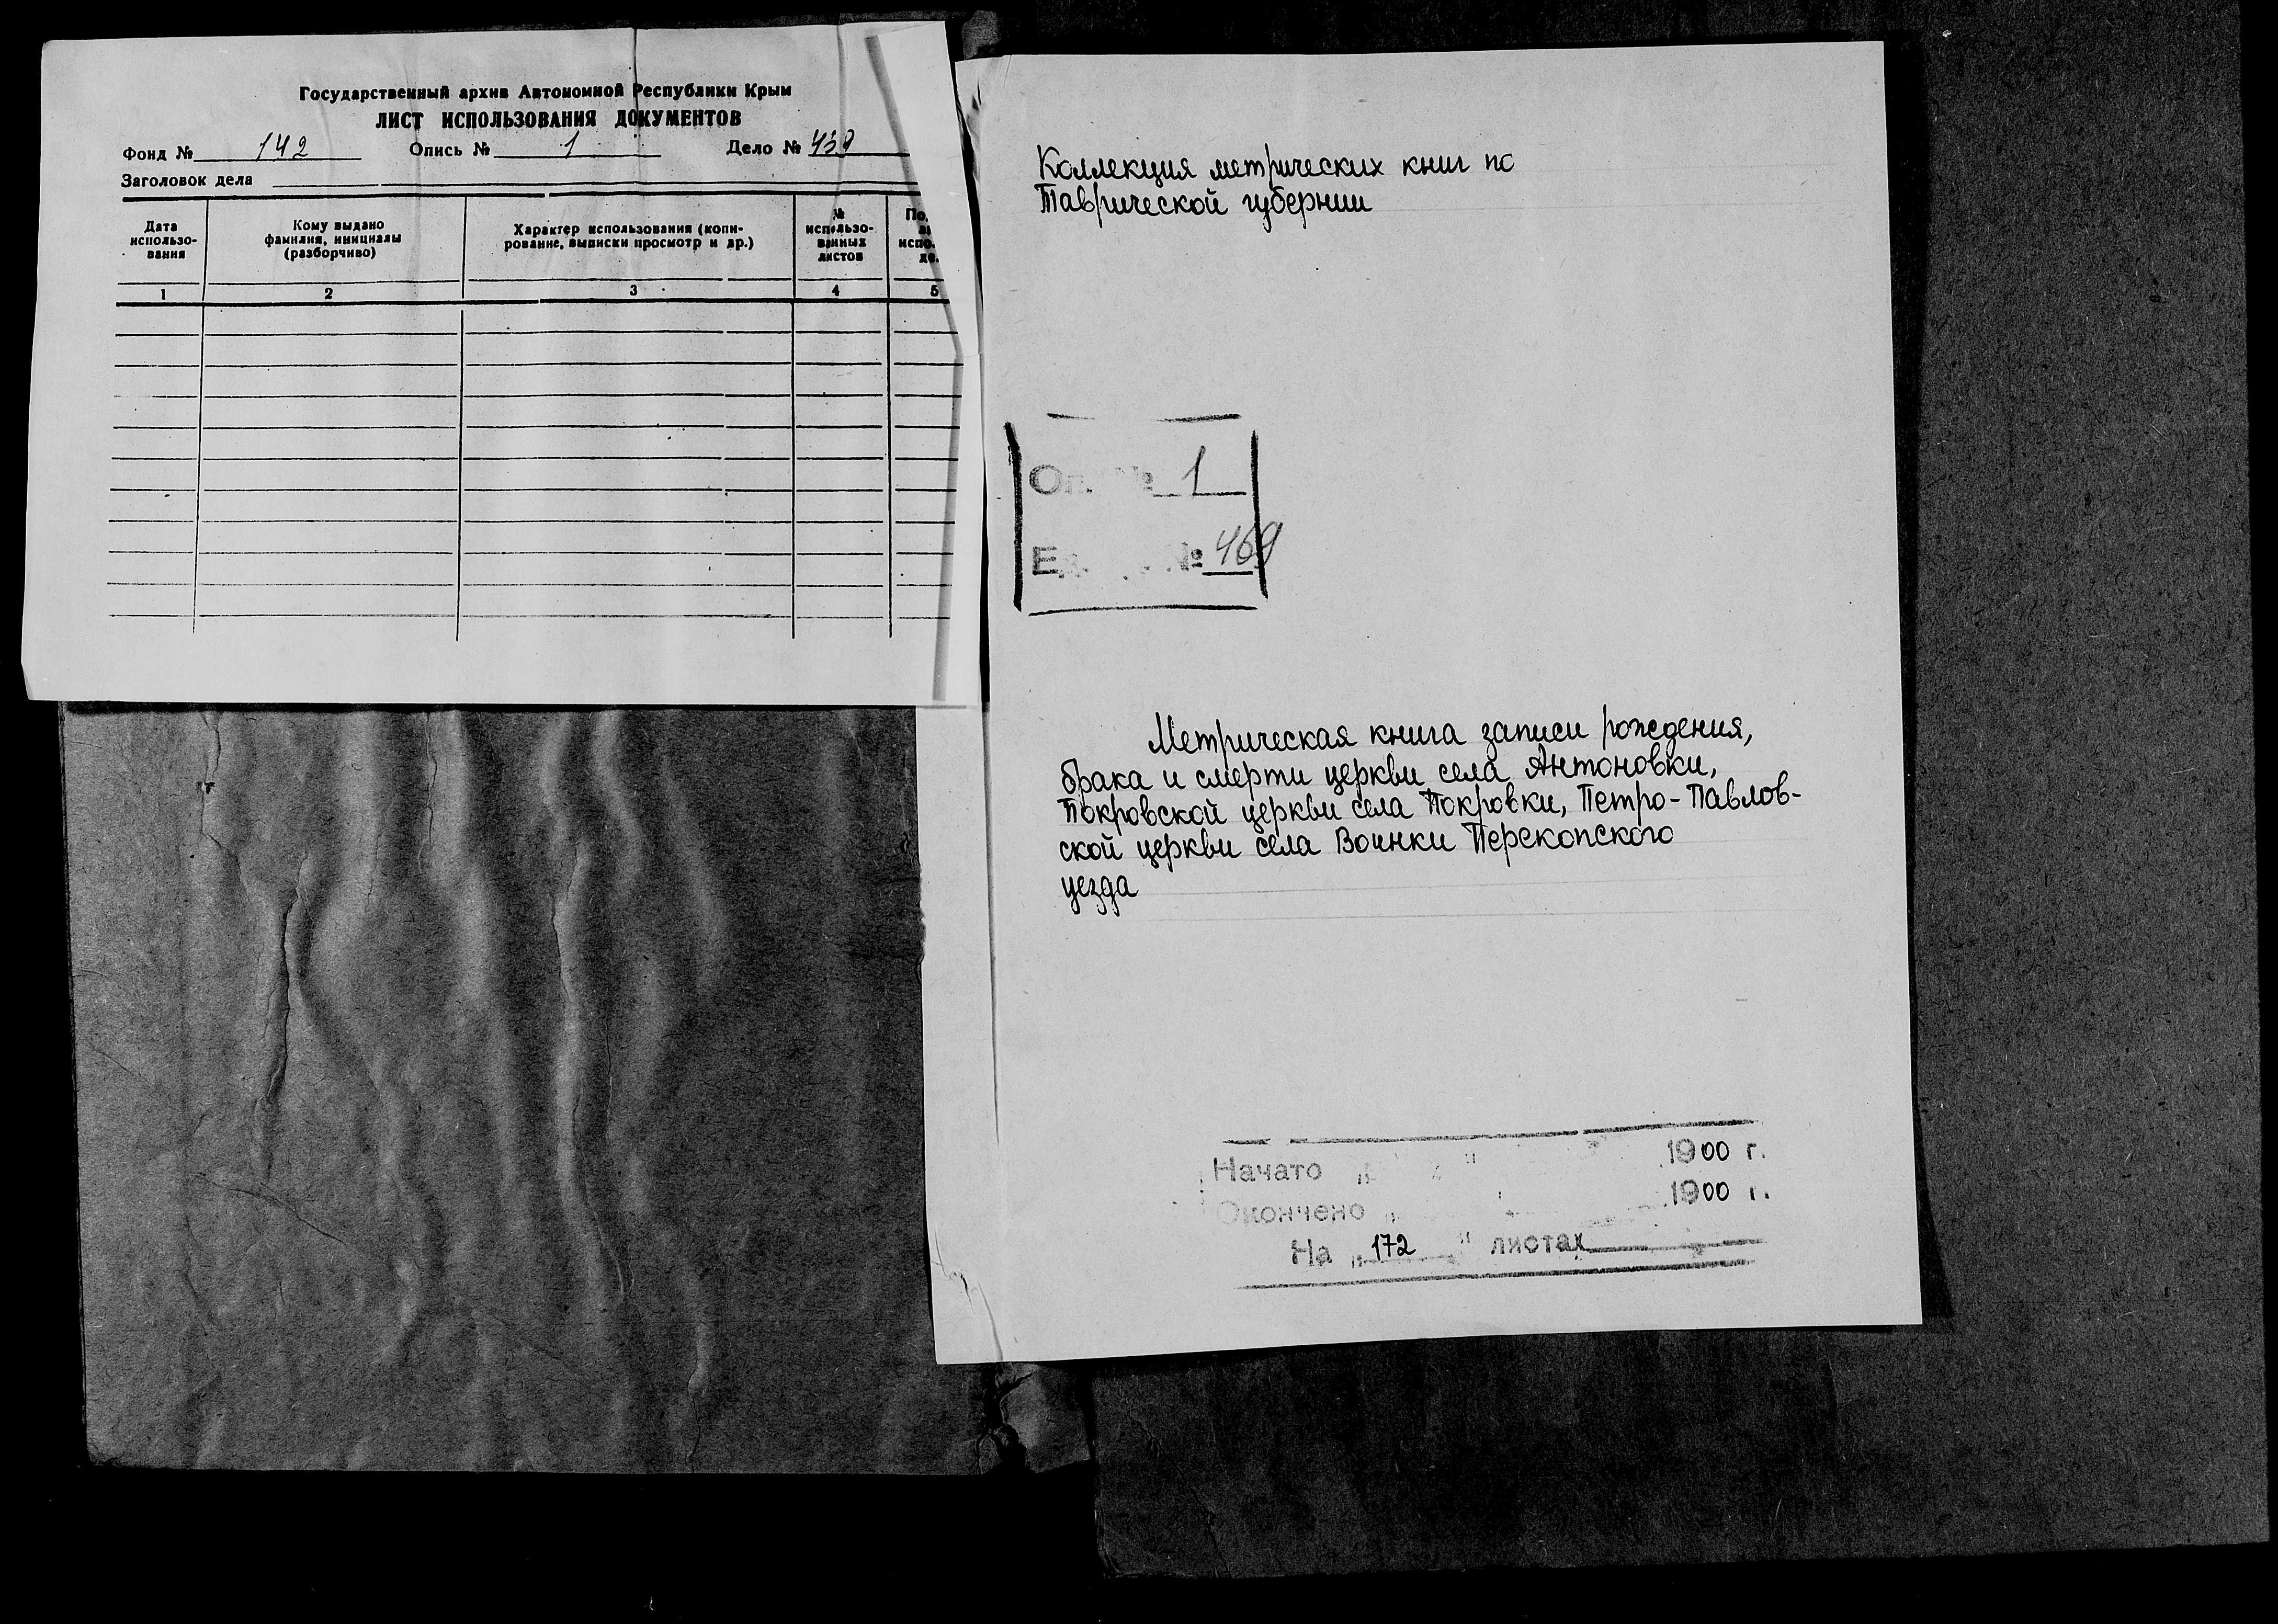 Государственный архив Автономной Республики Крым
ЛИСТ ИСПОЛЬЗОВАНИЯ ДОКУМЕНТОВ
Фонд № 142 Опись № 1 Дело №
Заголовок дела
Дата использо-вания
Кому выдано фамилия, инициалы (разборчиво)
Характер использования (копи-рование, выписки просмотр и др.)
№ использо-ванных листов
1 2 3 4 5
Коллекция метрических книг по
Таврической губернии
№ 1
№ 469
Метрическая книга записи рождения,
брака и смерти церкви села Антоновки,
Покровской церкви села Покровки, Петро-Павлов-
ской церкви села Воинки Перекопского
уезда
Начато „ " 1900 г.
Окончено „ 1900 г.
На „172" листах